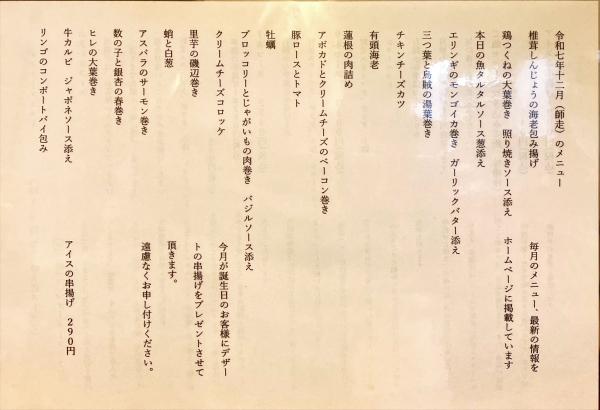 令和七年十二月（師走）のメニュー
椎茸しんじょうの海老包み揚げ
鶏つくねの大葉巻き　照り焼きソース添え
本日の魚タルタルソース葱添え
エリンギのモンゴイカ巻き　ガーリックバター添え
三つ葉と烏賊の湯葉巻き
チキンチーズカツ
有頭海老
蓮根の肉詰め
アボカドとクリームチーズのベーコン巻き
豚ロースとトマト
牡蠣
ブロッコリーとじゃがいもの肉巻き　バジルソース添え
クリームチーズコロッケ
里芋の磯辺巻き
蛸と白葱
アスパラのサーモン巻き
数の子と銀杏の春巻き
ヒレの大葉巻き
牛カルビ　ジャポネソース添え
リンゴのコンポートパイ包み
毎月のメニュー、最新の情報を
ホームページに掲載しています
今月が誕生日のお客様にデザー
トの串揚げをプレゼントさせて
頂きます。
遠慮なくお申し付けください。
アイスの串揚げ　290円